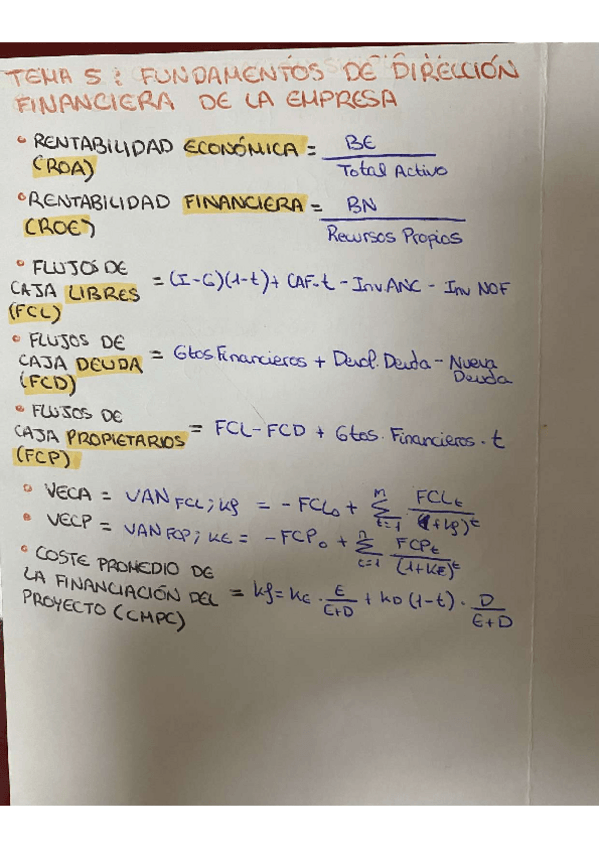 TEMA 5: FUNDAMENTOS DE DIRECCIÓN
FINANCIERA DE LA EMPRESA
• RENTABILIDAD ECONÓMICA = BE / Total Activo
(ROA)
• RENTABILIDAD FINANCIERA = BN / Recursos Propios
(ROE)
• FLUJOS DE
CAJA LIBRES = (I-G)(1-t) + CAF·t - Inv.ANC - Inv NOF
(FCL)
• FLUJOS DE
CAJA DEUDA = Gtos.Financieros + Devol. Deuda - Nueva Deuda
(FCD)
• FLUJOS DE
CAJA PROPIETARIOS = FCL-FCD + Gtos. Financieros · t
(FCP)
• VECA = VAN FCL; kf = - FCL0 + Σ n t=1 FCLt / (1+kf)^t
• VECP = VAN FCP; KE = - FCP0 + Σ n t=1 FCPt / (1+KE)^t
• COSTE PROMEDIO DE
LA FINANCIACIÓN DEL = kf = KE · E / E+D + KD (1-t) · D / E+D
PROYECTO (CMPC)